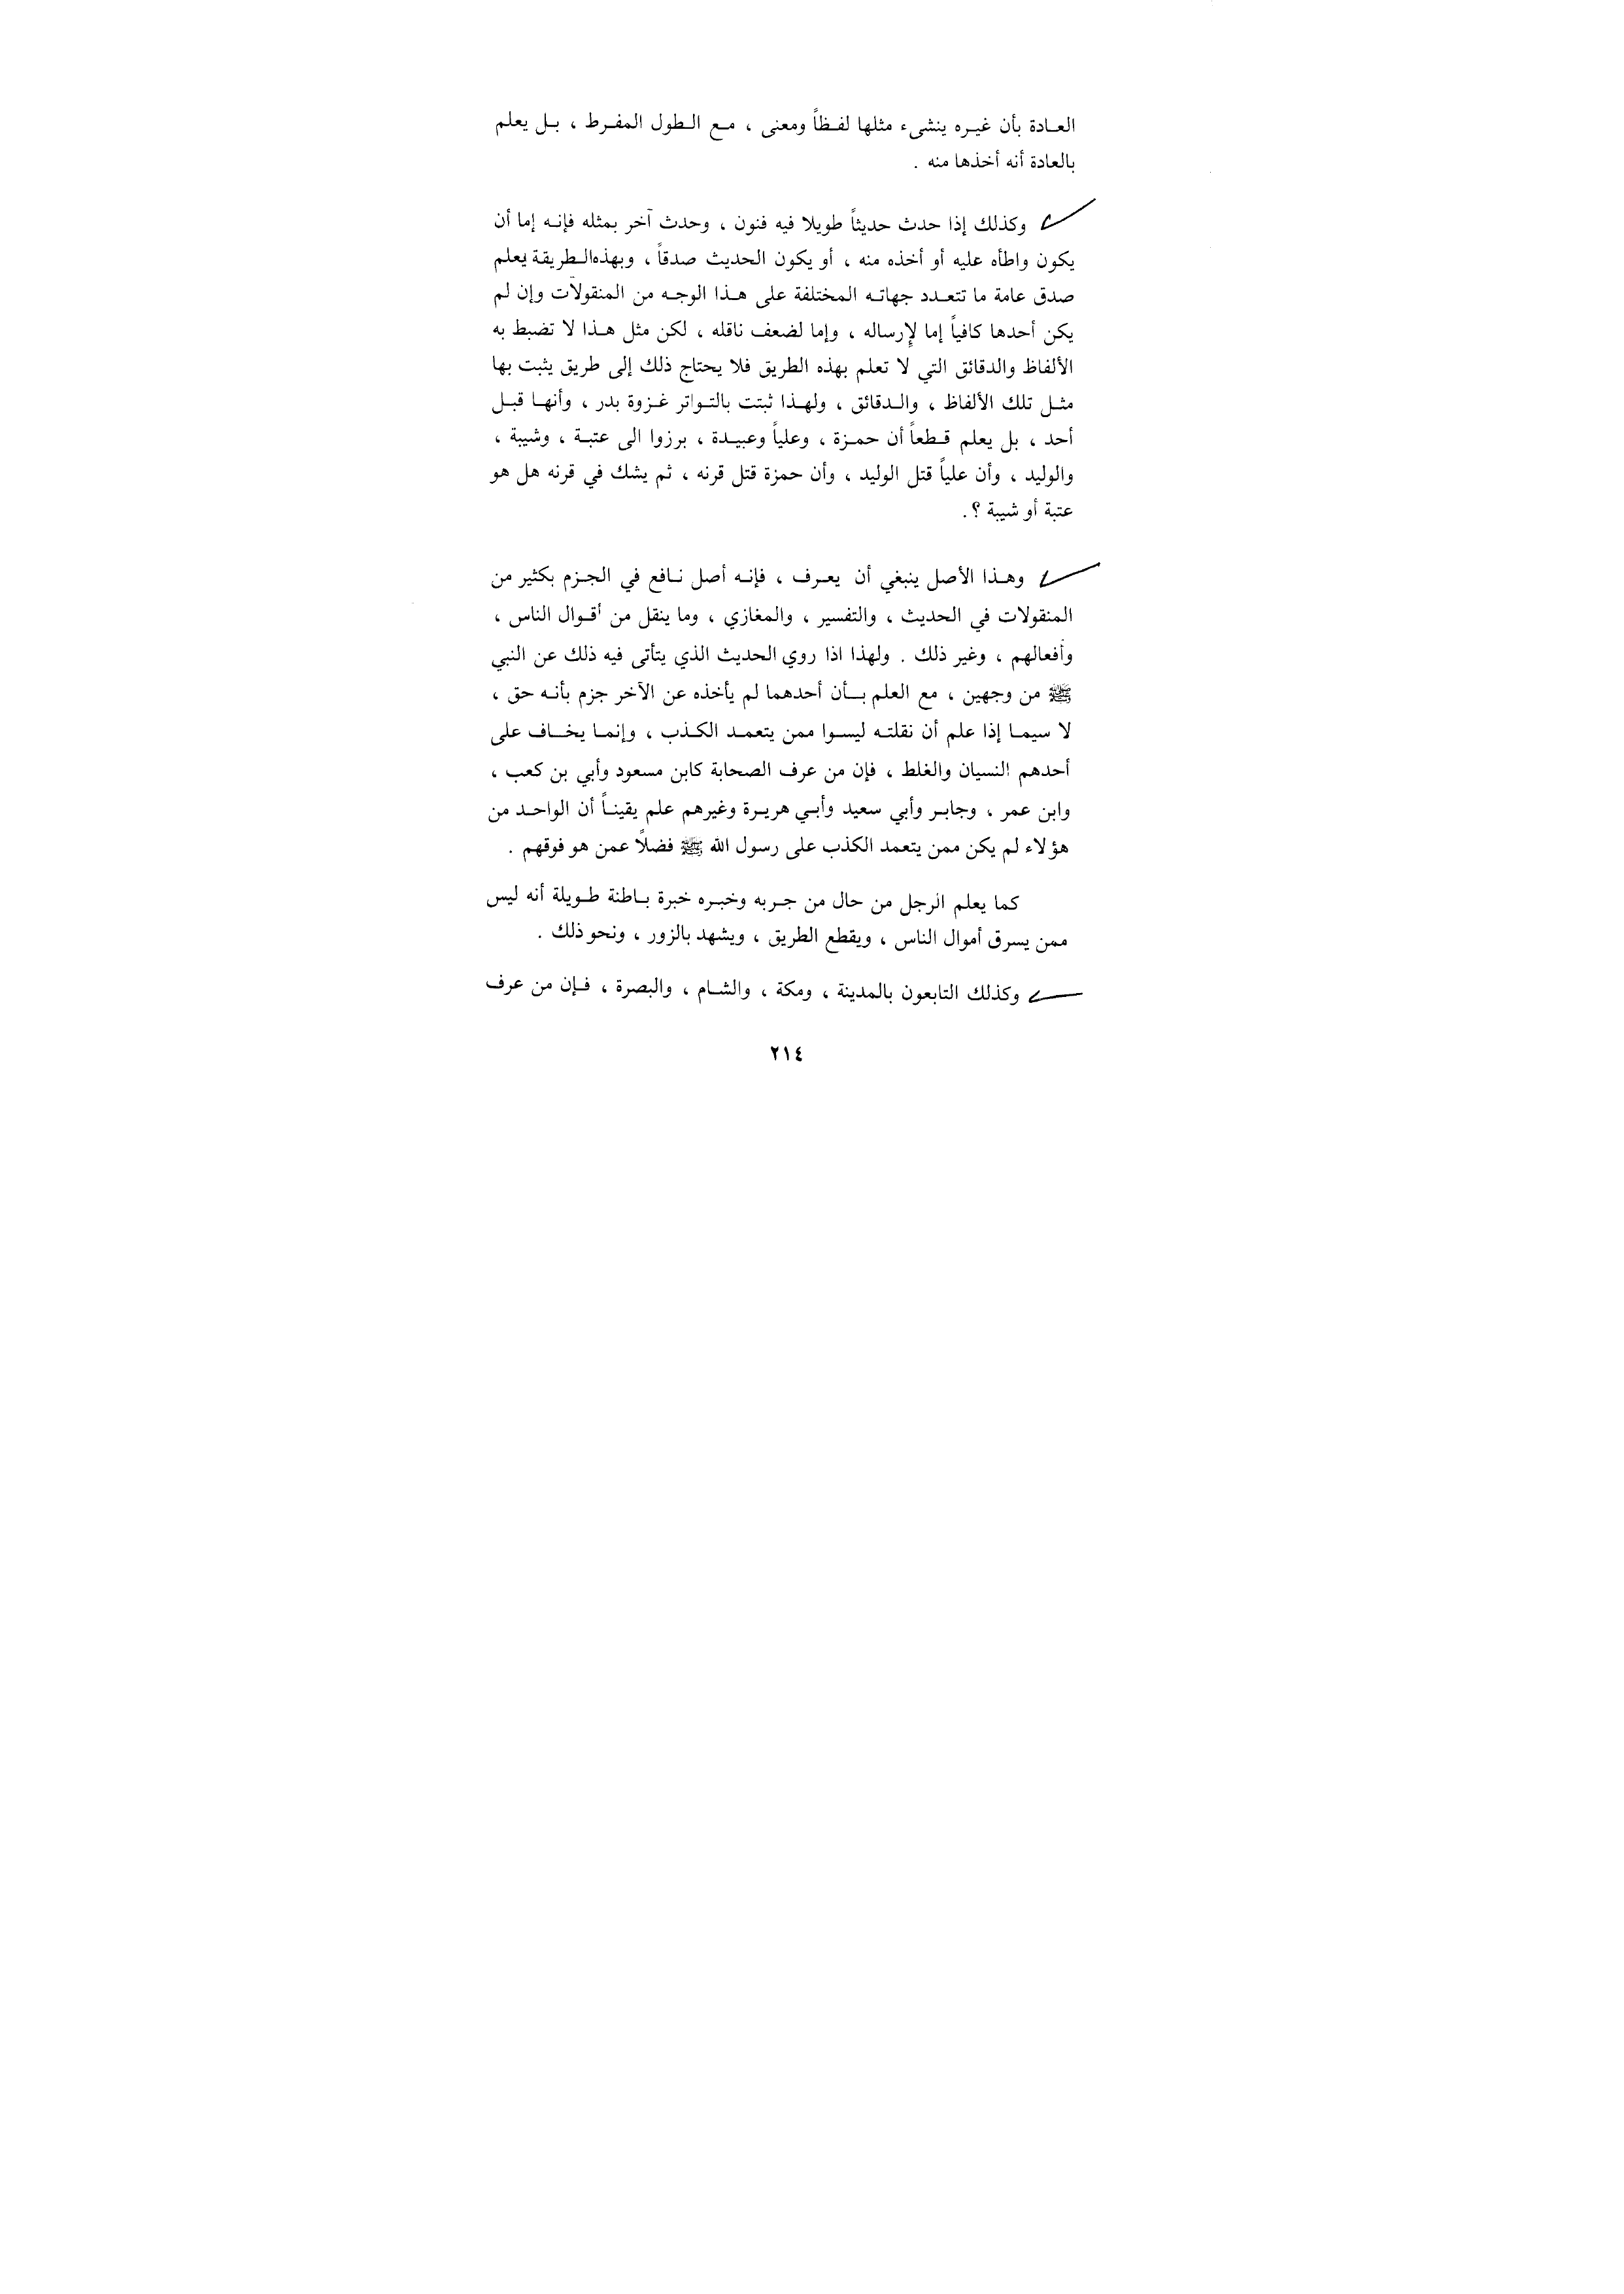 العادة بأن غيره ينشىء مثلها لفظاً ومعنى ، مع الطول المفرط ، بل يعلم
بالعادة أنه أخذها منه .
وكذلك إذا حدث حديثاً طويلا فيه فنون ، وحدث آخر بمثله فإنه إما أن
يكون واطأه عليه أو أخذه منه ، أو يكون الحديث صدقاً ، وبهذه الطريقة يعلم
صدق عامة ما تتعدد جهاته المختلفة على هذا الوجه من المنقولات وإن لم
يكن أحدها كافياً إما لإرساله ، وإما لضعف ناقله ، لكن مثل هذا لا تضبط به
الألفاظ والدقائق التي لا تعلم بهذه الطريق فلا يحتاج ذلك إلى طريق يثبت بها
مثل تلك الألفاظ ، والدقائق ، ولهذا ثبتت بالتواتر غزوة بدر ، وأنها قبل
أحد ، بل يعلم قطعاً أن حمزة ، وعلياً وعبيدة ، برزوا الى عتبة ، وشيبة ،
والوليد ، وأن علياً قتل الوليد ، وأن حمزة قتل قرنه ، ثم يشك في قرنه هل هو
عتبة أو شيبة ؟ .
وهذا الأصل ينبغي أن يعرف ، فإنه أصل نافع في الجزم بكثير من
المنقولات في الحديث ، والتفسير ، والمغازي ، وما ينقل من أقوال الناس ،
وأفعالهم ، وغير ذلك . ولهذا اذا روي الحديث الذي يتأتى فيه ذلك عن النبي
ﷺ من وجهين ، مع العلم بأن أحدهما لم يأخذه عن الآخر جزم بأنه حق ،
لا سيما إذا علم أن نقلته ليسوا ممن يتعمد الكذب ، وإنما يخاف على
أحدهم النسيان والغلط ، فإن من عرف الصحابة كابن مسعود وأبي بن كعب ،
وابن عمر ، وجابر وأبي سعيد وأبي هريرة وغيرهم علم يقيناً أن الواحد من
هؤلاء لم يكن ممن يتعمد الكذب على رسول الله ﷺ فضلاً عمن هو فوقهم .
كما يعلم الرجل من حال من جربه وخبره خبرة باطنة طويلة أنه ليس
ممن يسرق أموال الناس ، ويقطع الطريق ، ويشهد بالزور ، ونحو ذلك .
وكذلك التابعون بالمدينة ، ومكة ، والشام ، والبصرة ، فإن من عرف
٢١٤